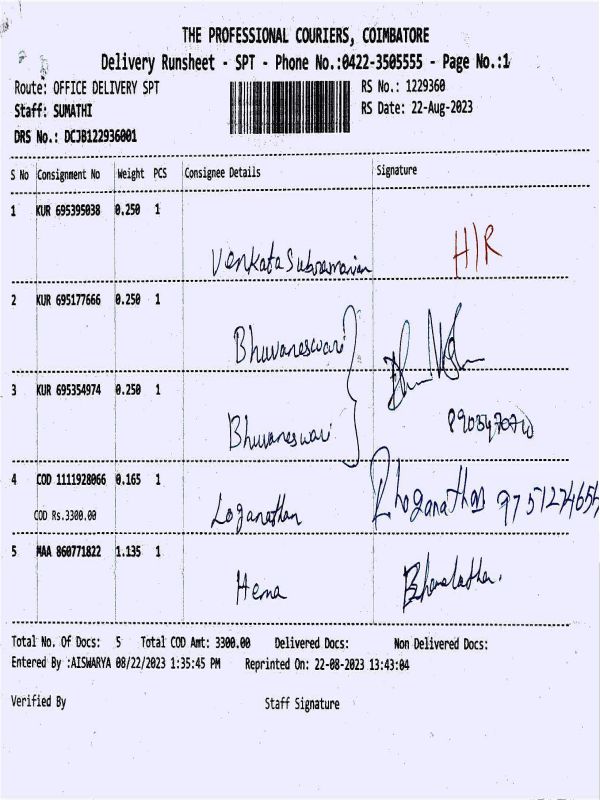 THE PROFESSIONAL COURIERS, COIMBATORE
Delivery Runsheet - SPT - Phone No.:0422-3505555 - Page No.:1
Route: OFFICE DELIVERY SPT
RS No.: 1229360
Staff: SUMATHI
RS Date: 22-Aug-2023
DRS No.: DCJB122936001
S No Consignment No Weight PCS Consignee Details Signature
1 KUR 695395038 0.250 1
Venkata Subramanian H/R
2 KUR 695177666 0.250 1
Bhuvaneswari
3 KUR 695354974 0.250 1
Bhuvaneswari
4 COD 1111928066 0.165 1
COD Rs.3300.00
Loganathan
5 MAA 860771822 1.135 1
Hema
Total No. Of Docs: 5 Total COD Amt: 3300.00 Delivered Docs: Non Delivered Docs:
Entered By :AISWARYA 08/22/2023 1:35:45 PM Reprinted On: 22-08-2023 13:43:04
Verified By Staff Signature